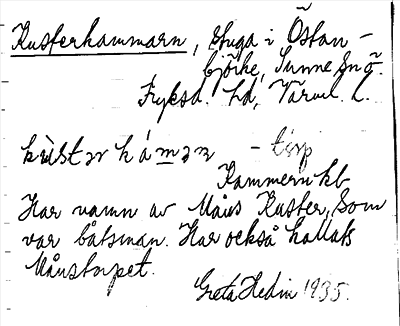 Kusterhammarn, stuga i Östan-
björke, Sunne sn
Fryksd. hd, Värml. l.
kùstərhámən - torp
Kammern kb
Har namn av Måns Kuster, som
var båtsman. Har också kallats
Månstorpet.
Greta Hedin 1935.